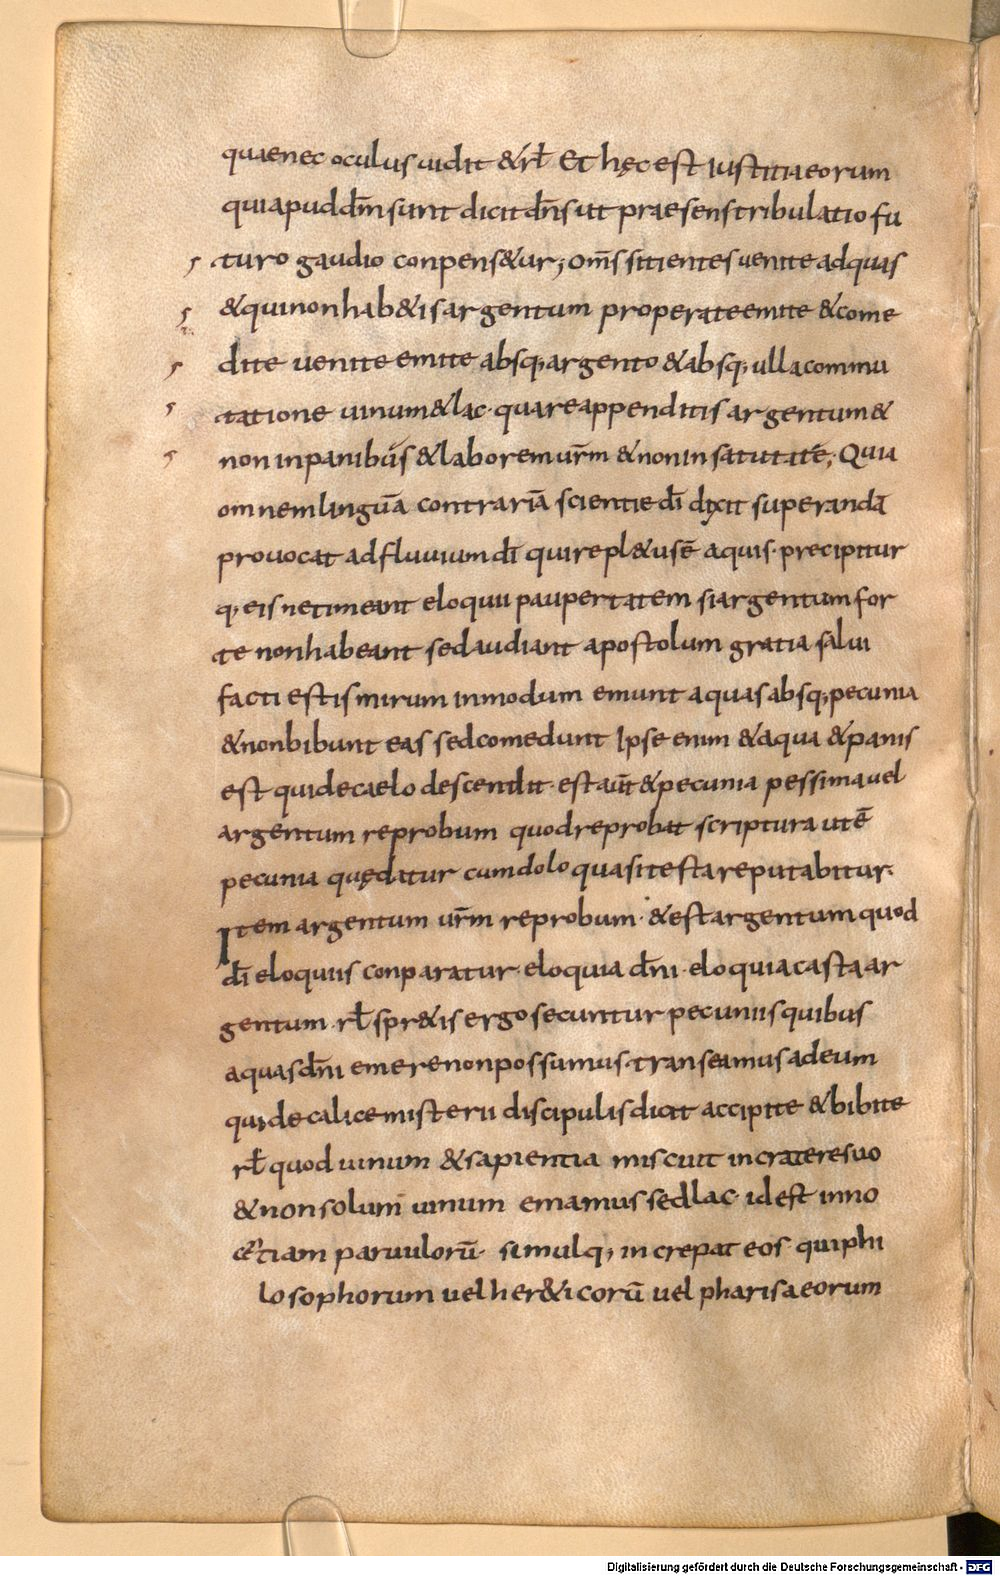 quaenec oculus uidit &rł Et hęc est iustitia eorum
quia pud dm̄ sunt dicit dn̄s ut praesens tribulatio fu
turo gaudio conpens&ur; om̄s sitientes uenite ad quas
&qui non hab&is argentum properate emite &come
dite uenite emite absq; argento &absq; ulla commu
tatione uinum &lac· quare appenditis argentum &
non in panibus &laborem ur̄m &non in satutate; Quia
omnem linguā contrariā scientie dī dixit superandā
prouocat ad fluuium dī qui repl&us ē aquis· precipitur
q; eis ne timeant eloquii paupertatem si argentum for
te non habeant sed audiant apostolum gratia salui
facti estis mirum inmodum emunt aquas absq; pecunia
&non bibunt eas sed comedunt Ipse enim &aqua &panis
est qui de caelo descendit· est aūt &pecunia pessima uel
argentum reprobum quod reprobat scriptura ut ē
pecunia quędatur cum dolo quasi testa reputabitur·
Item argentum ur̄m reprobum· &est argentum quod
dī eloquiis conparatur· eloquia dn̄i· eloquia casta ar
gentum· rł spr&is ergo secuntur pecuniis quibus
aquas dn̄i emere non possumus· transeamus ad eum
qui de calice misterii discipulis dicit accipite &bibite
rł quod uinum &sapientia miscuit in cratere suo
&non solum uinum emamus sed lac· id est inno
cētiam paruulorū· simulq; increpat eos· qui phi
losophorum uel her&icorū uel pharisaeorum
Digitalisierung gefördert durch die Deutsche Forschungsgemeinschaft - DFG